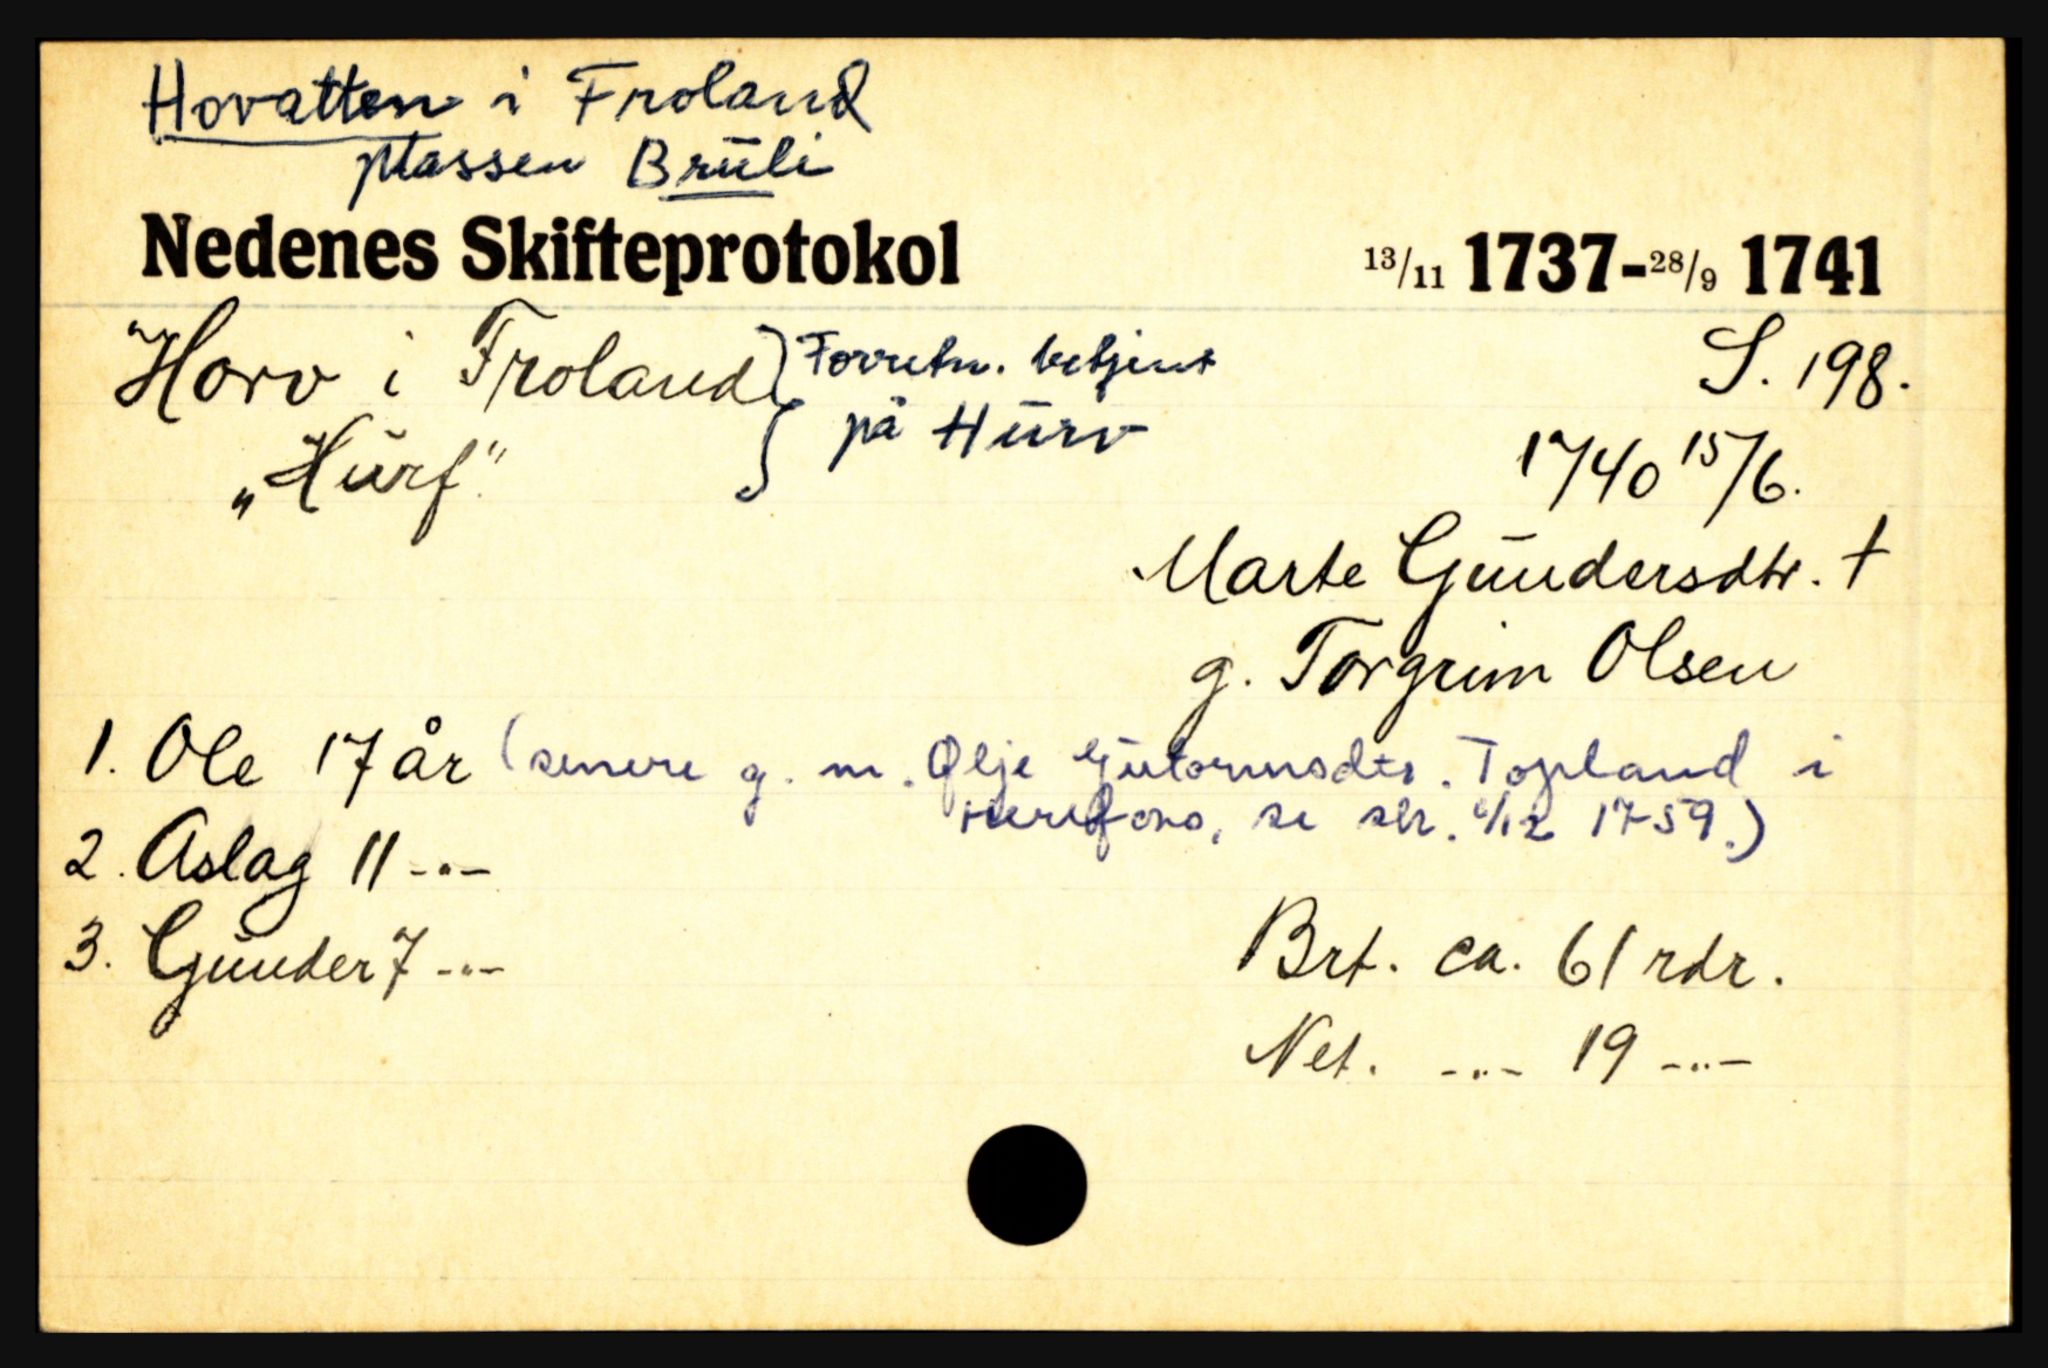 Hovatten i Froland
plassen Brūli
Nedenes Skifteprotokol 13/11 1737-28/9 1741
Horv i Froland } Forretn. betjent S. 198.
„Hŭrf" på Hūrv
1740 15/6.
Marte Gūndersdtr. †
g. Torgrim Olsen
1. Ole 17 år (senere g. m. Ølje Gutormsdtr. Topland i
Herefoss, se skr. 1759.)
2. Aslag 11 -"-
3. Gūnder 7 -"-
Brt. ca. 61 rdr.
Net. -"- 19 -"-